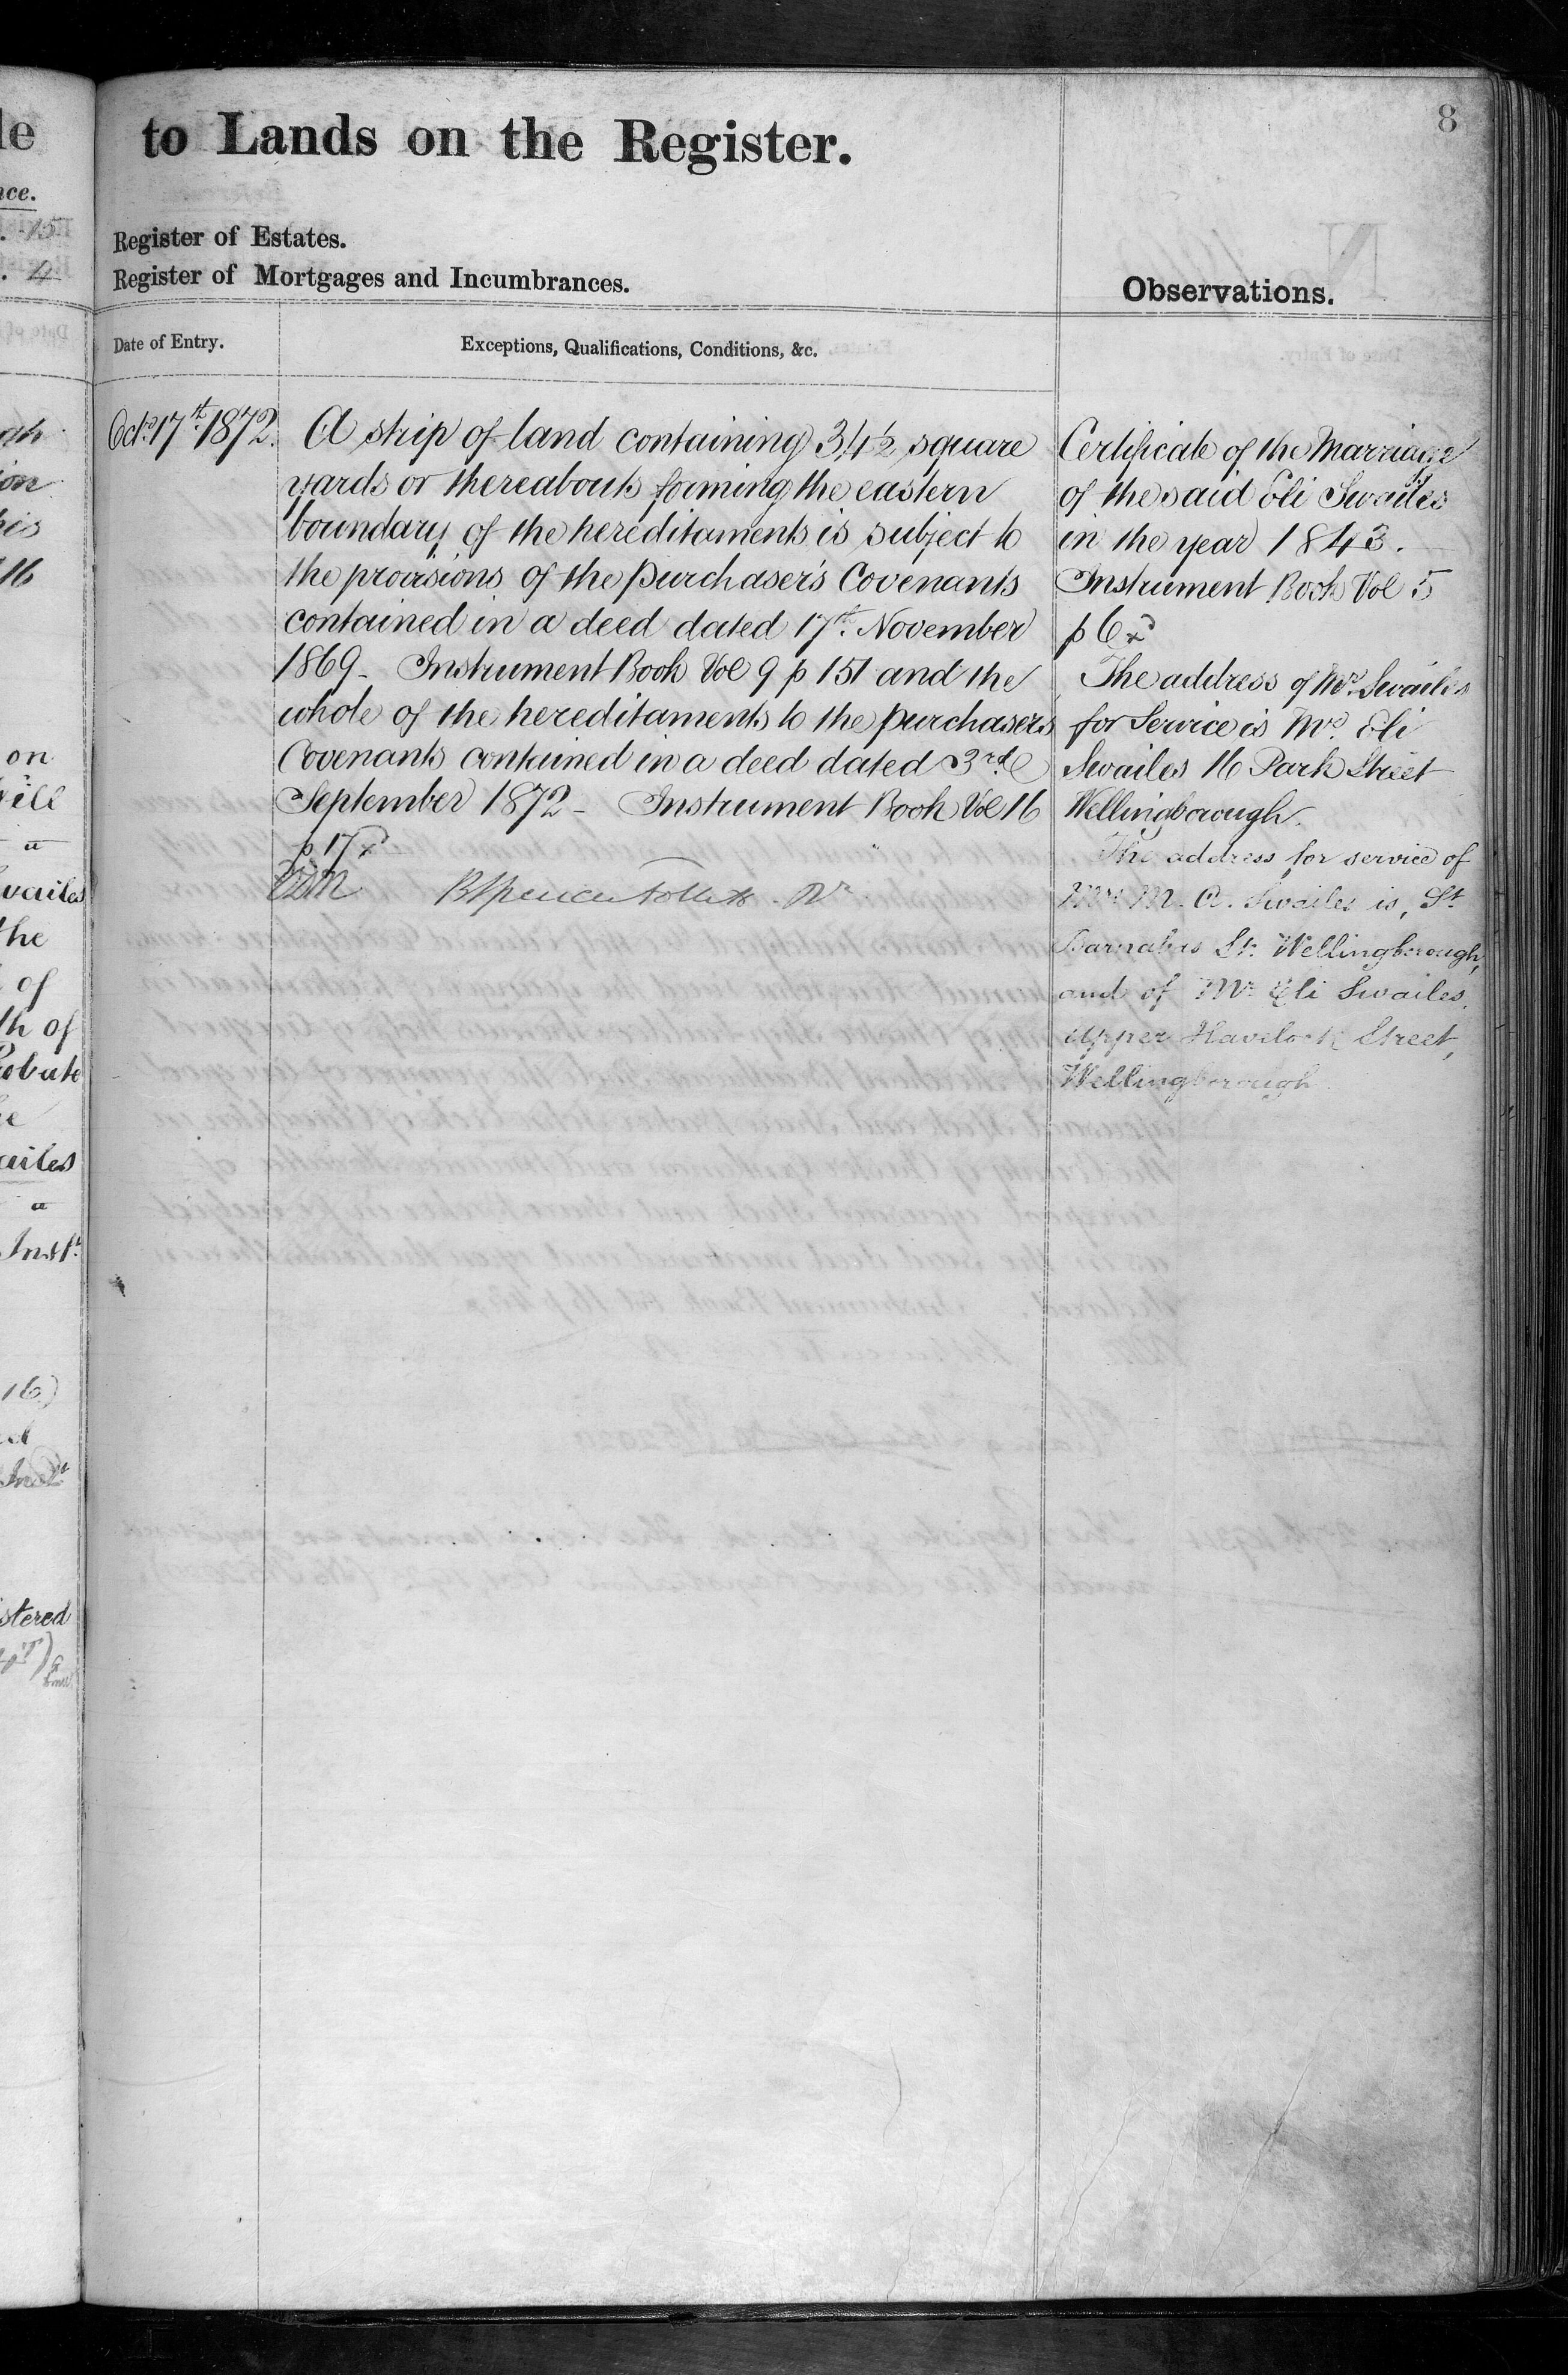 8
to Lands on the Register.
Register of Estates.
Register of Mortgages and Incumbrances.
Observations.
Date of Entry.
Exceptions, Qualifications, Conditions, &c.
Oct. 17th 1872.
A strip of land containing 34½ square
yards or thereabouts forming the eastern
boundary of the hereditaments is subject to
the provisions of the purchaser's Covenants
contained in a deed dated 17th. November
1869 - Instrument Book Vol 9 p 151 and the
whole of the hereditaments to the purchasers
Covenants contained in a deed dated 3rd
September 1872 - Instrument Book Vol 16
p 17
Certificate of the Marriage
of the said Eli Swailes
in the year 1843.
Instrument Book Vol 5
p 6
The address of Mr. Swailes
for Service is Mr. Eli
Swailes 16 Park Street
Wellingborough.
The address for service of
M. A. Swailes is, St.
Barnabas St. Wellingborough,
and of Mr. Eli Swailes,
Upper Havelock Street,
Wellingborough